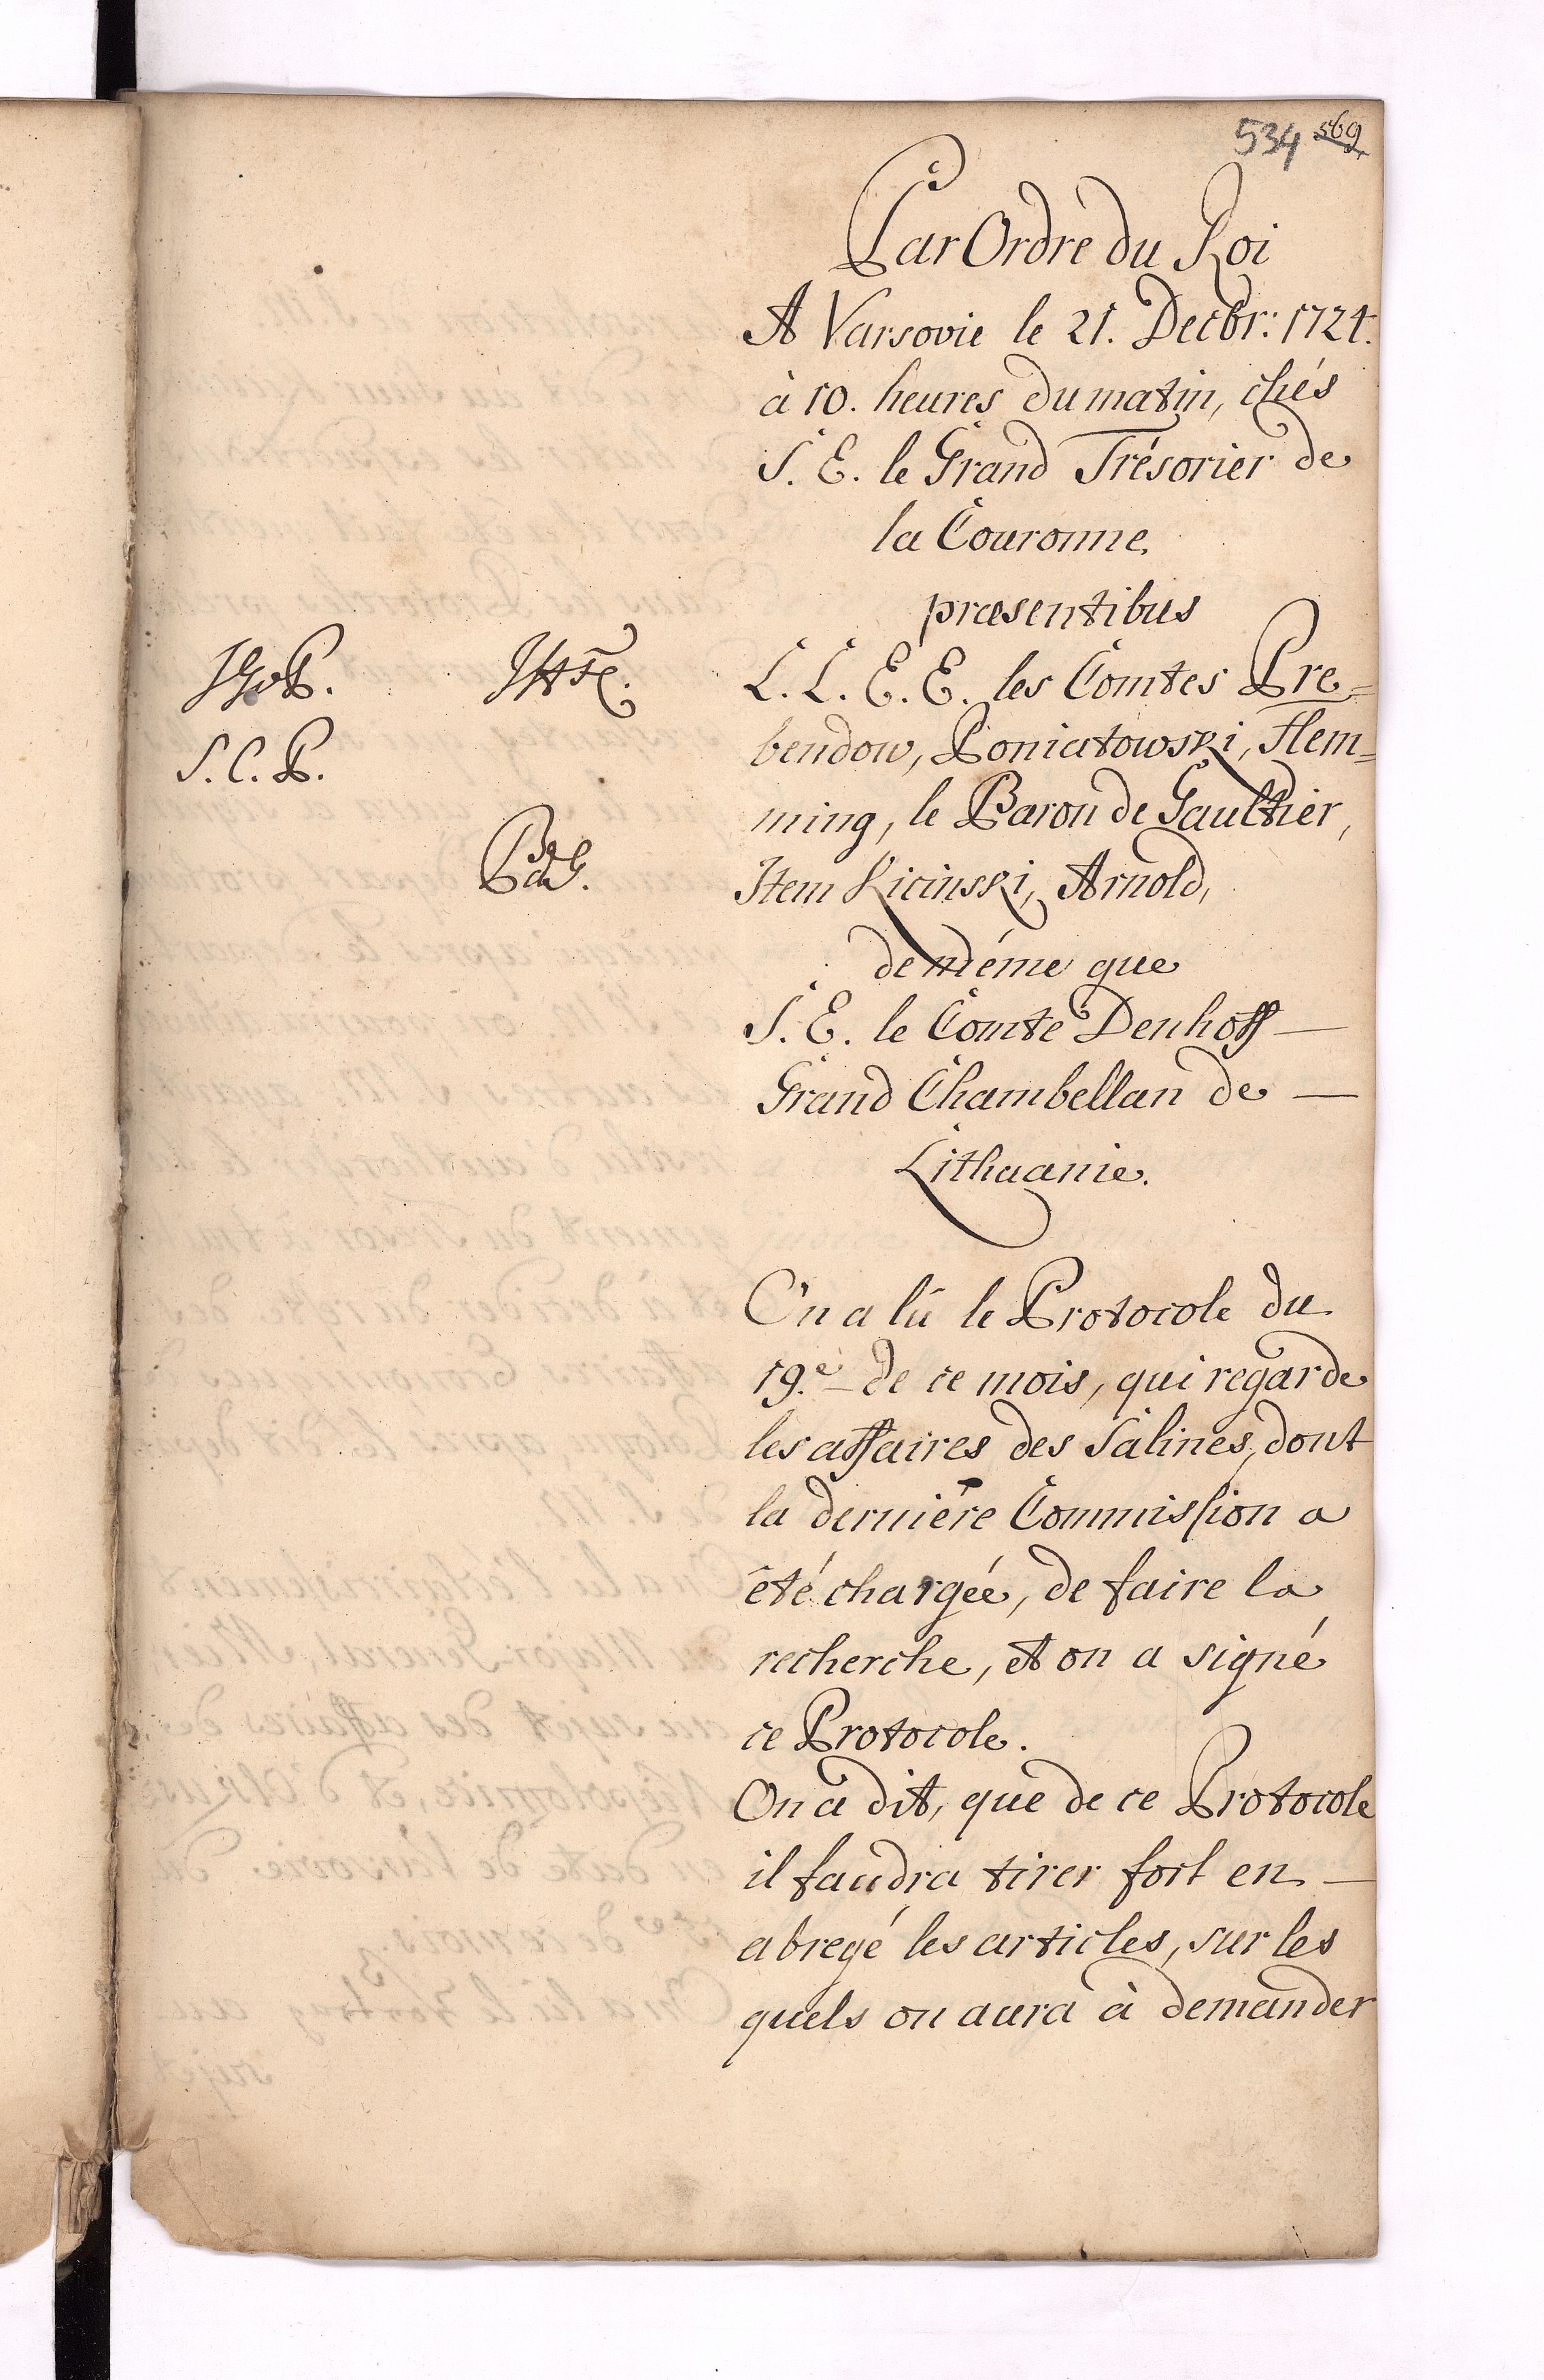 534 569
Par Ordre du Roi
A Varsovie le 21. Decbr: 1724.
à 10. heures du matin, chés
S. E. le Grand Trésorier de
la Couronne.
præsentibus
L. L. E. E. les Comtes Pre=
bendow, Poniatowski, Flem=
ming, le Baron de Gaultier,
Item Licinski, Arnold,
de même que
S. E. le Comte Denhoff —
Grand Chambellan de —
Lithuanie.
S. C. P.
BdG.
On a lû le Protocole du
19.e de ce mois, qui regarde
les affaires des Salines, dont
la derniére Commission a
été chargée, de faire la
recherche, et on a signé
ce Protocole.
On a dit, que de ce Protocole
il faudra tirer fort en —
abregé les articles, sur les
quels on aura à demander